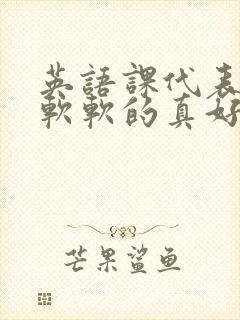 英語課代表
軟軟的真好
芒果鯊鱼